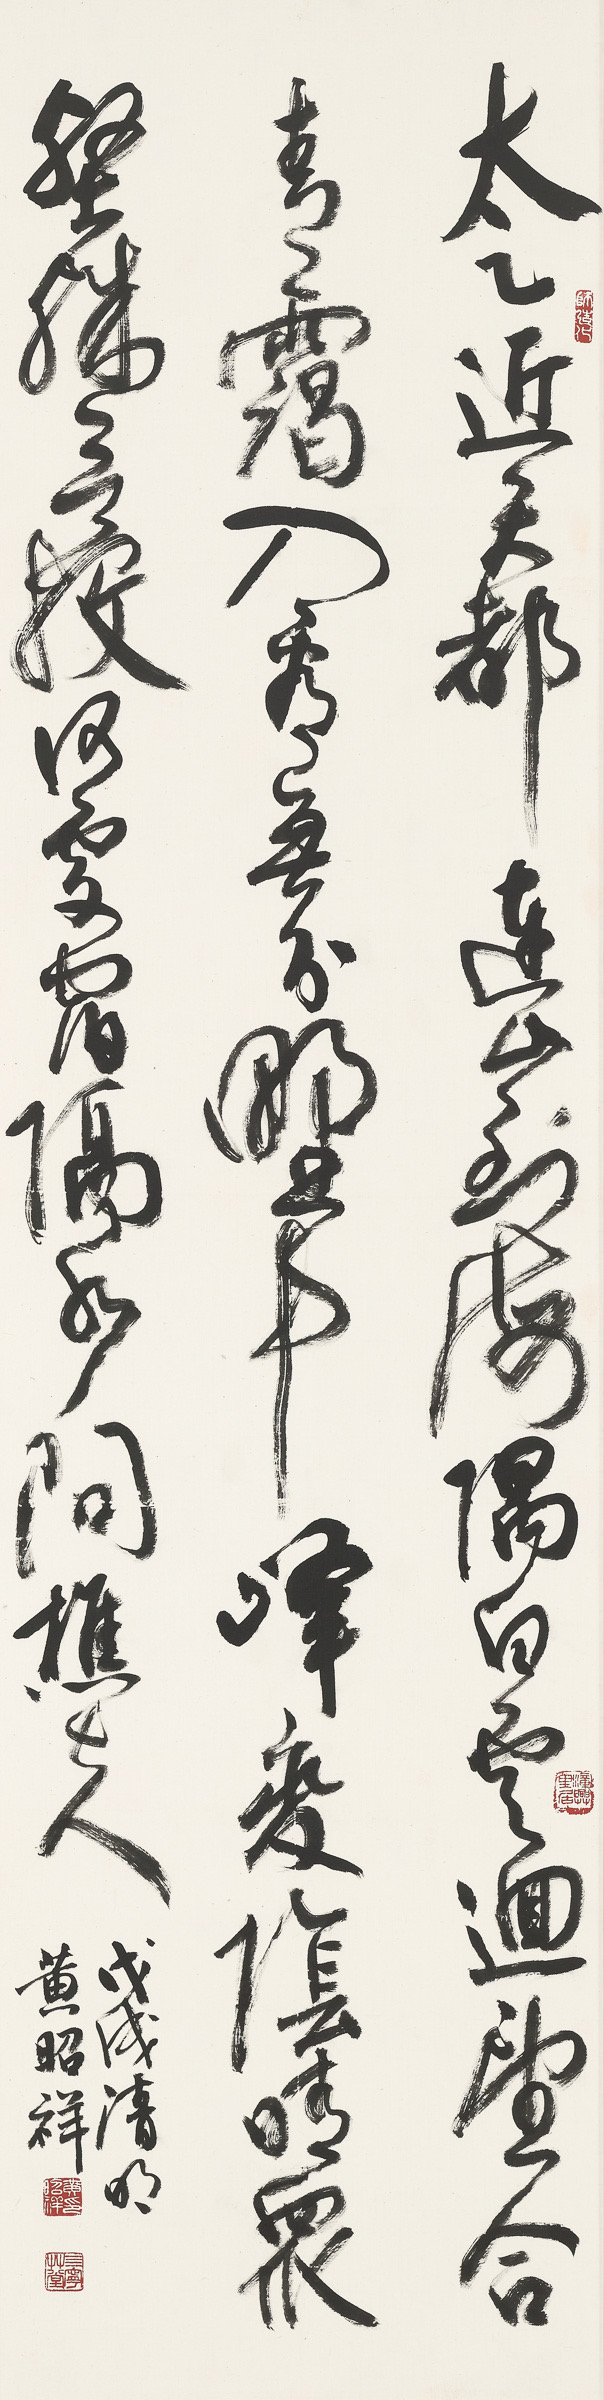 太乙近天都連山到海隅白雲迴望合
青靄入看無分野中峰變陰晴眾
壑殊欲投何處宿隔水問樵夫
戊戌清明
黄昭祥